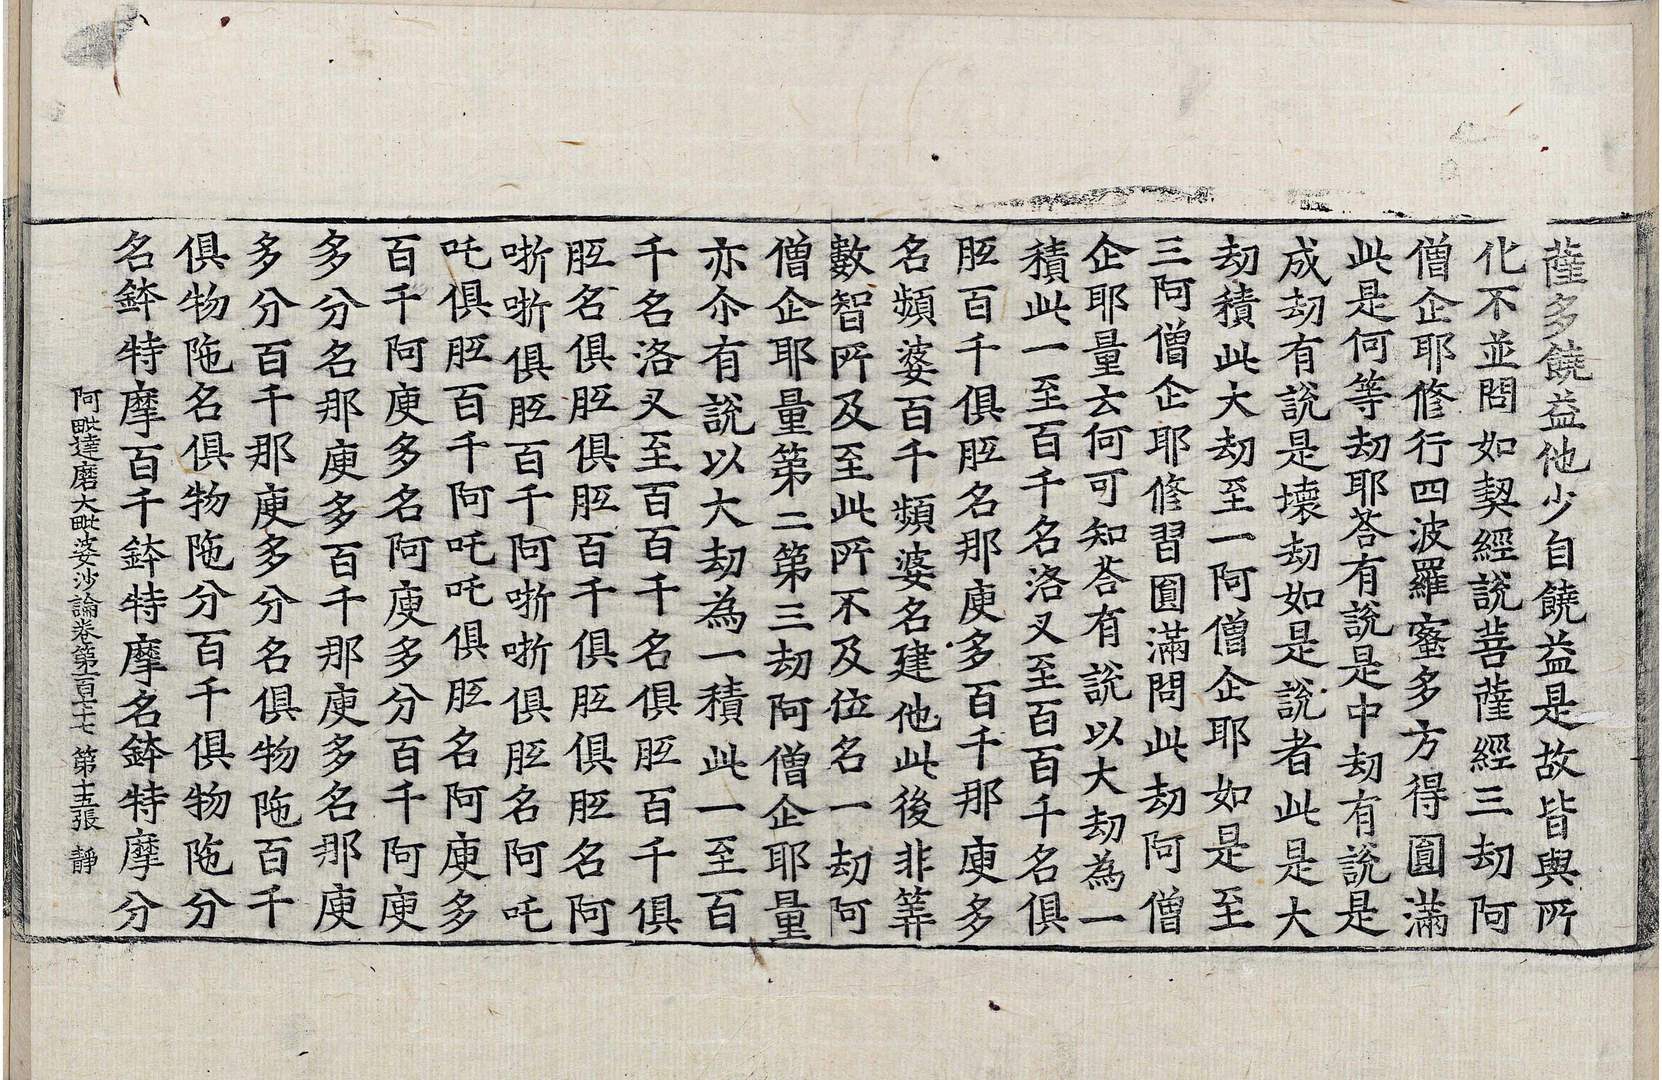 薩多饒益他少自饒益是故皆與所
化不並問如契經說菩薩經三劫阿
僧企耶修行四波羅蜜多方得圓滿
此是何等劫耶荅有說是中劫有說是
成劫有說是壞劫如是說者此是大
劫積此大劫至一阿僧企耶如是至
三阿僧企耶修習圓滿問此劫阿僧
企耶量云何可知荅有說以大劫為一
積此一至百千名洛叉至百百千名俱
胝百千俱胝名那庾多百千那庾多
名頻婆百千頻婆名建他此後非筭
數智所及至此所不及位名一劫阿
僧企耶量第二第三劫阿僧企耶量
亦尒有說以大劫為一積此一至百
千名洛叉至百百千名俱胝百千俱
胝名俱胝俱胝百千俱胝俱胝名阿
哳哳俱胝百千阿哳哳俱胝名阿吒
吒俱胝百千阿吒吒俱胝名阿庾多
百千阿庾多名阿庾多分百千阿庾
多分名那庾多百千那庾多名那庾
多分百千那庾多分名俱物陁百千
俱物陁名俱物陁分百千俱物陁分
名鉢特摩百千鉢特摩名鉢特摩分
阿毗達磨大毗婆沙論卷第一百七十七 第十五張 靜